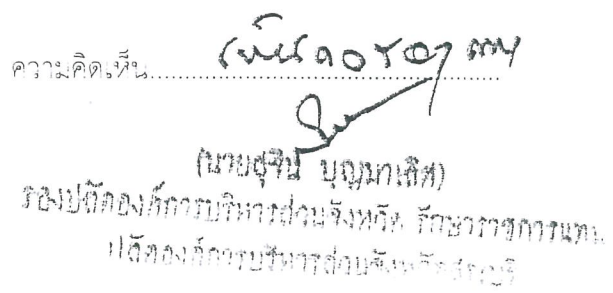 ความคิดเห็น....................
(นายสุจินต์ บุญมาเลิศ)
รองปลัดองค์การบริหารส่วนจังหวัด รักษาราชการแทน
ปลัดองค์การบริหารส่วนจังหวัด